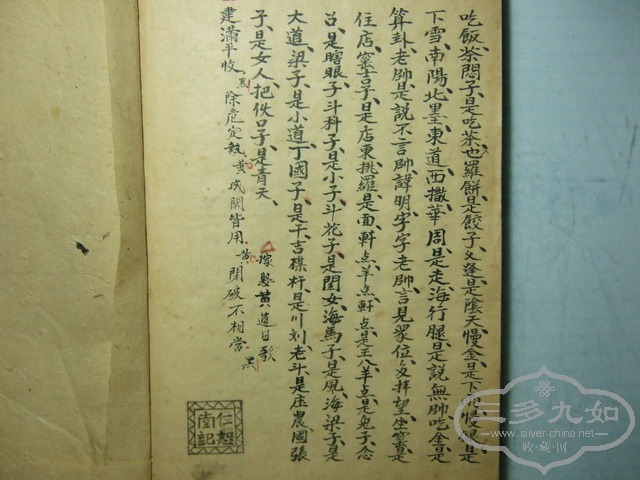 吃飯、茶悶子、是吃茶也、羅餅是餃子、乂逢是陰天、慢金、是下
下雪、南陽、北墨、東道、西撒、華周、是走、海行腿、是説無帥、吃金、是
算卦、老帥、是説不言帥、諱明字字老帥、言見衆位、乂拝望、坐窰是
住店、窰吉子、是店東、挑羅是面、軒点、羊点、軒点是王八、羊点是兔子、念
是瞎眼、子斗科子、是小子、斗花子、是閨女、海馬子、是風、海梁子、是
大道、梁子、是小道、丁國子、是干吉、楪杆、是川刘、老斗、是庄農、國張
子、是女人、把佚口子、是青天、
嫁娶黄道日歌
建滿平收黑 除危定執黄 成開皆用黄 閉破不相當黑
仁堂記
三多九如
www.silver-china.net
收·藏·网